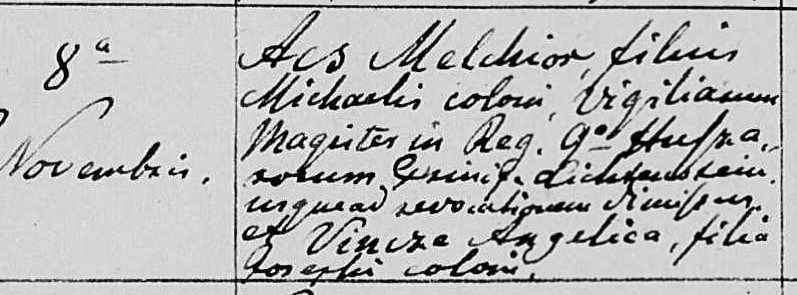 8ª
Novembris.
Acs Melchior, filius
Michaelis coloni, Vigiliarum
Magister in Reg. 9º Hussza-
rorum Lichtenstein
usquead revocationem dimissus.
et Vincze Angelica, filia
Josephi coloni.